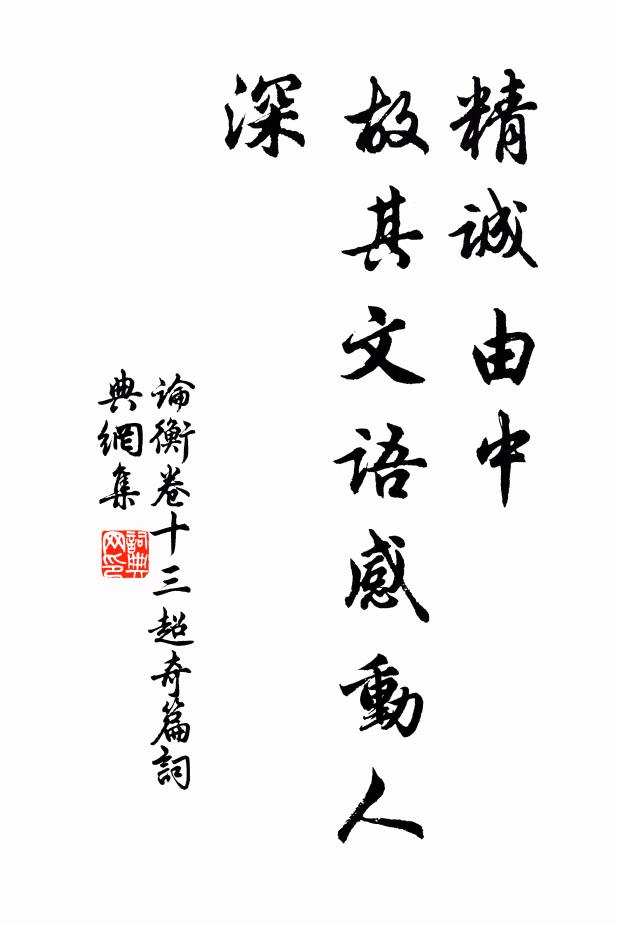 精誠由中
故其文語感動人
深
論衡卷十三超奇篇詞
典網集
詞典网印